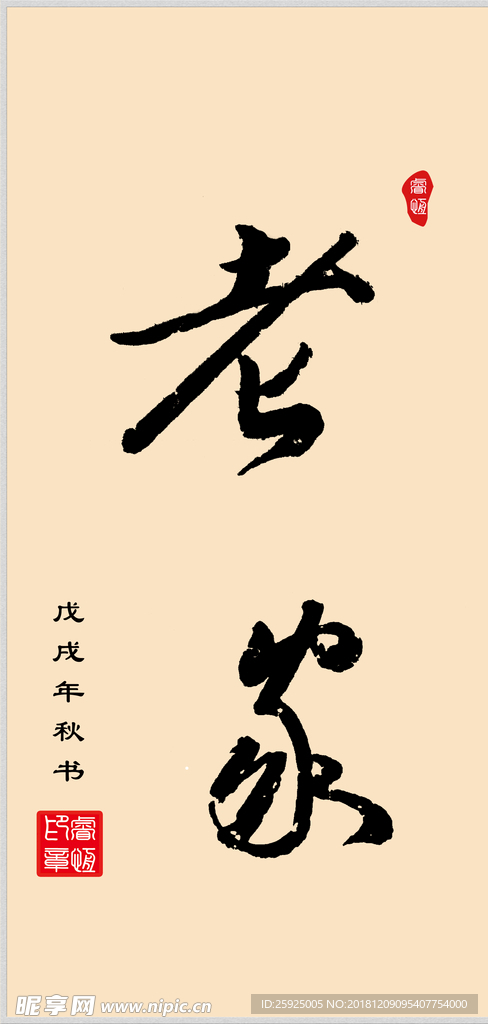 老家
睿恆
戊戌年秋书
睿恆印章
昵享网 www.nipic.cn
ID:25925005 NO:20181209095407754000